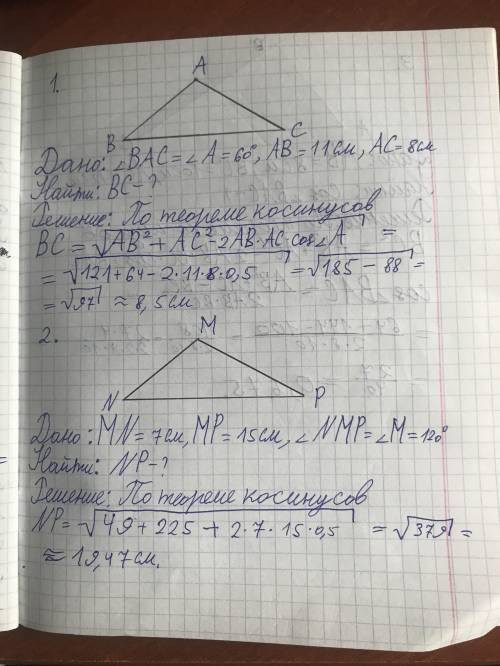 1.
A
B
C
Дано: ∠BAC = ∠A = 60°, AB = 11 см, AC = 8 см
Найти: BC - ?
Решение: По теореме косинусов
BC = √AB² + AC² - 2AB · AC · cos∠A =
= √121 + 64 - 2 · 11 · 8 · 0,5 = √185 - 88 =
= √97 ≈ 8,5 см
2.
M
N
P
Дано: MN = 7 см, MP = 15 см, ∠NMP = ∠M = 120°
Найти: NP - ?
Решение: По теореме косинусов
NP = √49 + 225 + 2 · 7 · 15 · 0,5 = √379 =
≈ 19,47 см.